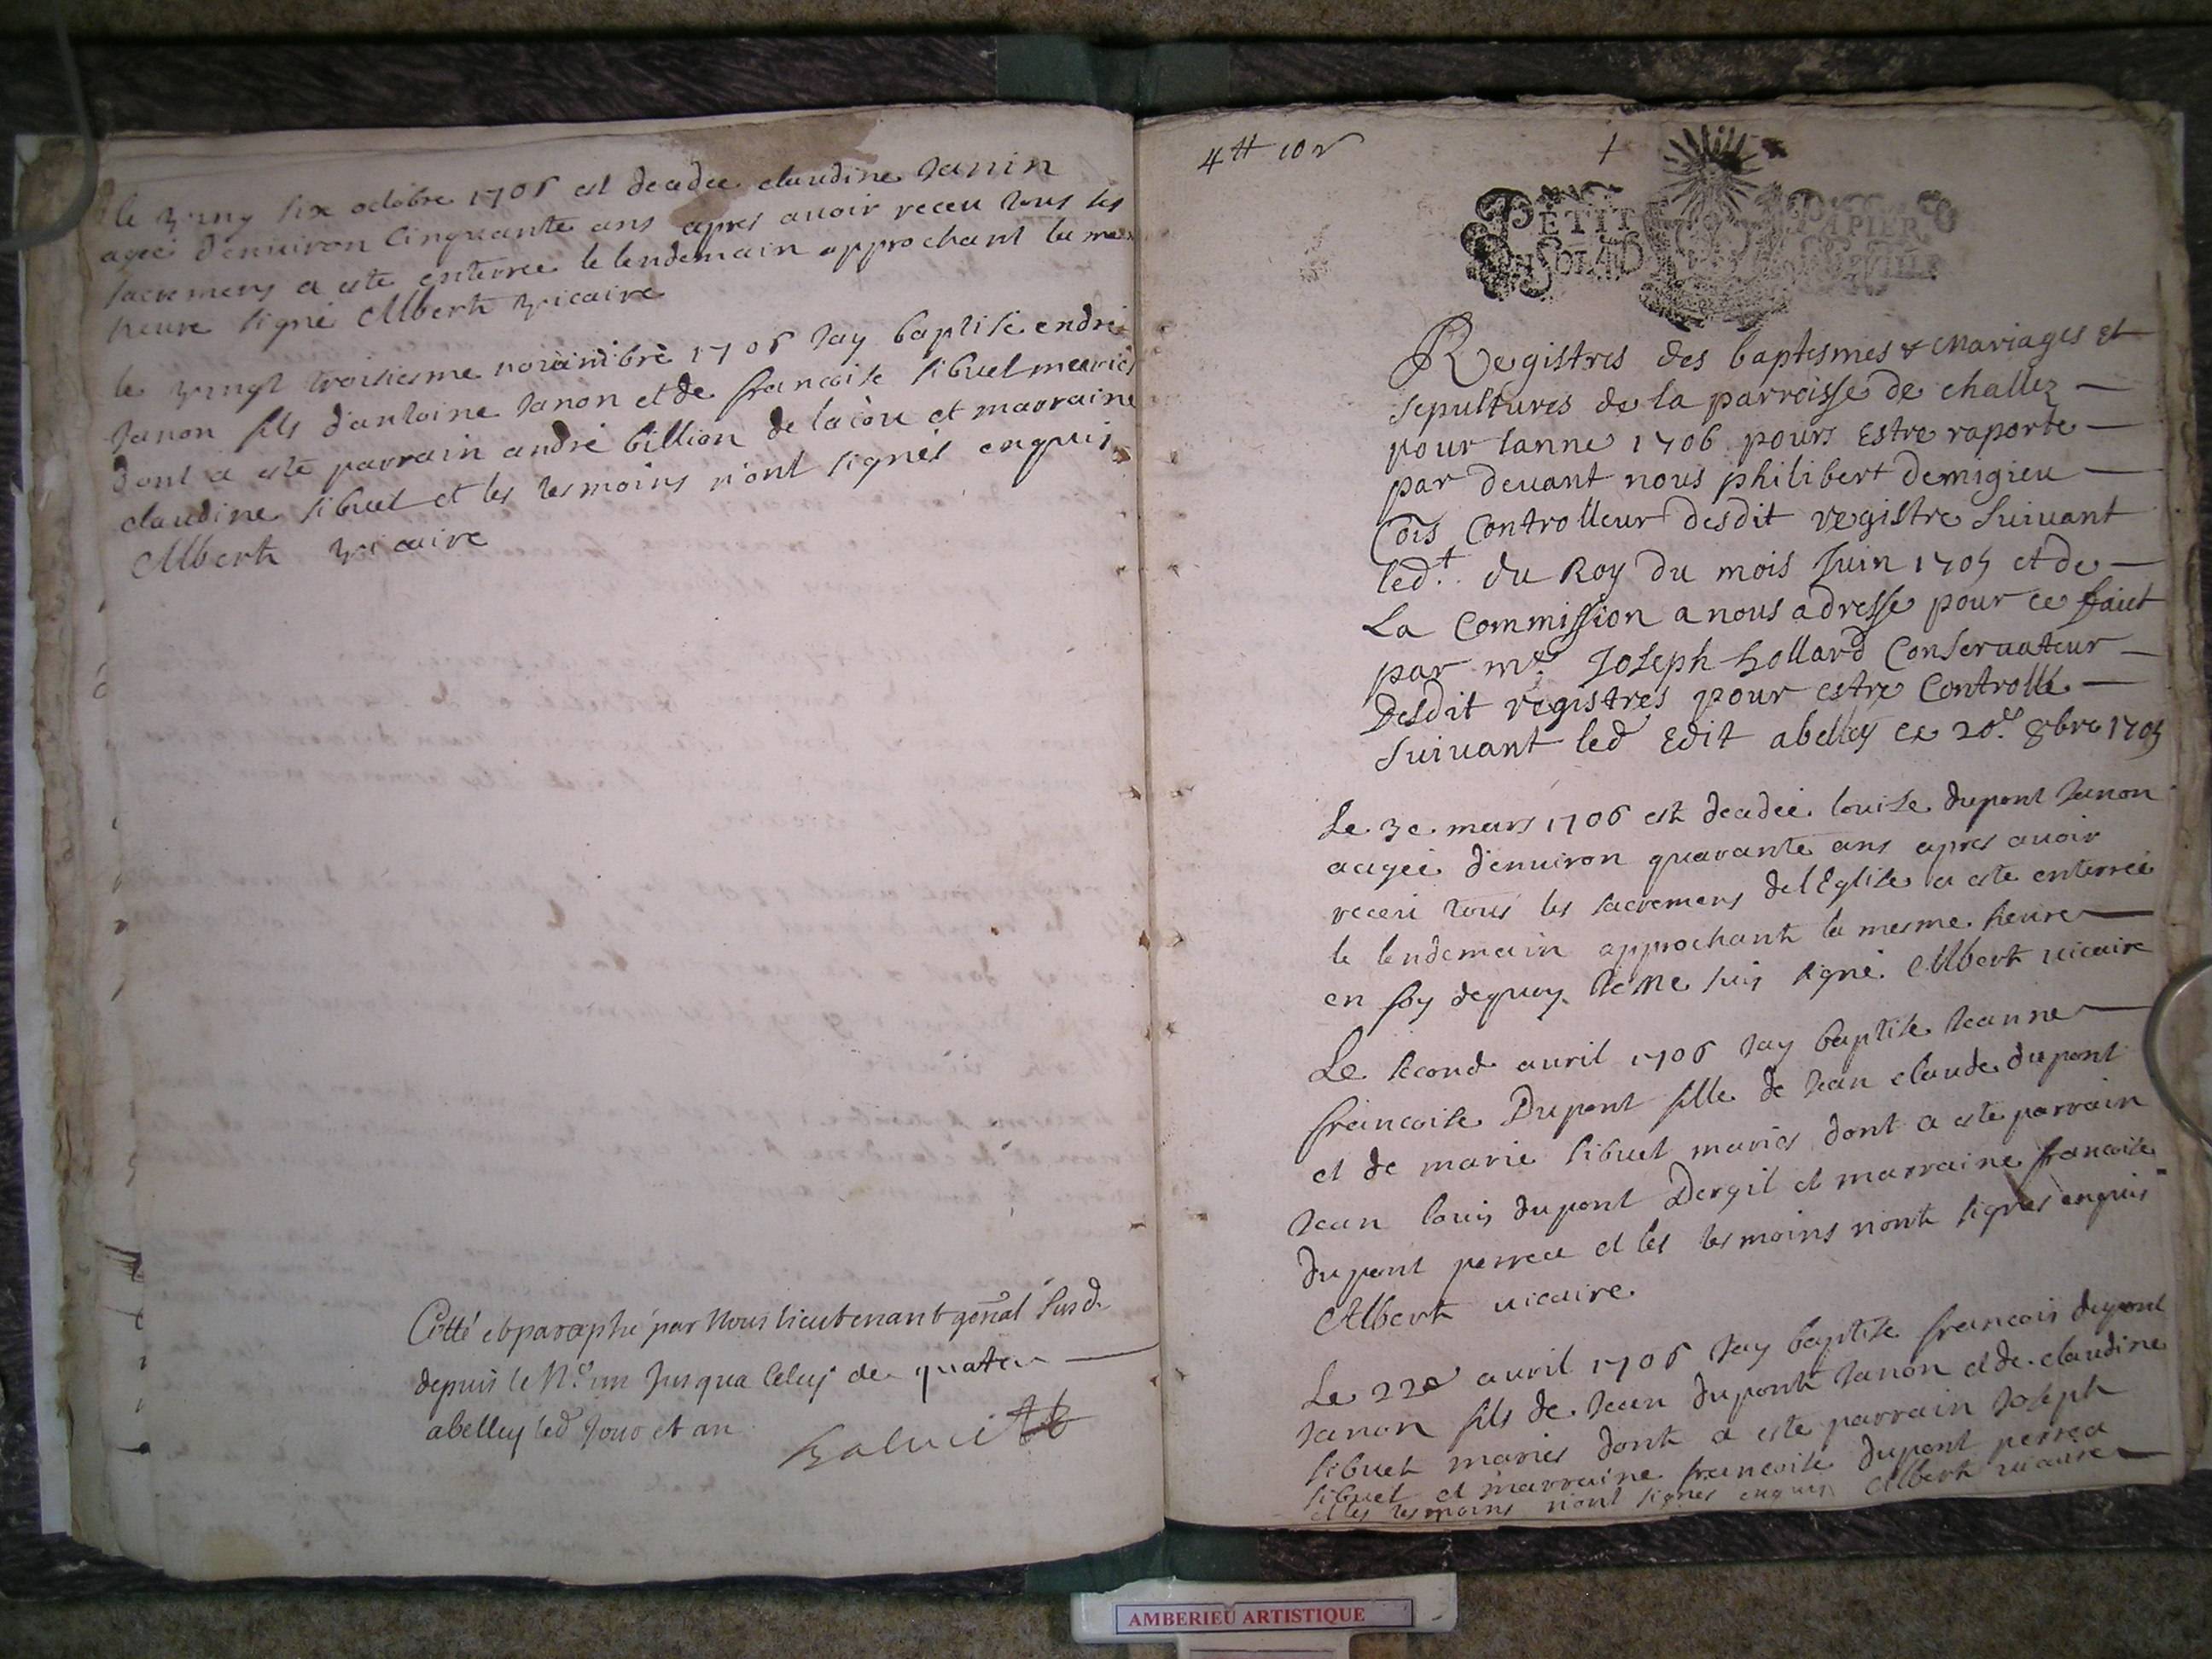 le ving six octobre 1706 est decedee claudine Janin
agée d'enuiron Cinquante ans apres auoir receu tous les
sacremens a esté enterree le lendemain approchant la me
heure signé Albert vicaire
le vingt troisiesme nouambre 1706 Jay baptise endré
Janon fils d'antoine Janon et de francoise sibuet mariés
dont a esté parrain andré billion de lacou et marraine
claudine sibuet et les tesmoins n'ont signés enquis
Albert vicaire
Cotté et paraphé par Nous lieutenant gñal susd.
depuis le N.o un Jusqua Celuy de quatre
abelley led Jour et an
4tt 10s
PETIT PAPIER
Registres des baptesmes & Mariages et
sepultures de la parroisse de challez
pour lanne 1706 pours Estre raporte
par deuant nous philibert demigieu
Cõis Controlleur desdit registre Suiuant
led.t du Roy du mois Juin 1705 et de
La Commission a nous adresse pour ce faict
par mre Joseph hollard Conseruatteur
Desdit registres pour estre Controllé
Suiuant led Edit abelley ce 20.e 8bre 1705
Le 3e mars 1706 est decedeé louise dupont Janon
aagée d'enuiron quarante ans apres auoir
receu tous les sacremens de l'Eglise a esté enterree
le lendemain approchant la mesme heure
en foy dequoy Je me suis signé Albert uicaire
Le second auril 1706 Jay baptise Jeanne
francoise Dupont fille de Jean claude dupont
et de marie sibuet mariés dont a esté parrain
Jean louis dupont Dergil et marraine francoise
dupont perrea et les tesmoins n'ont signés enquis
Albert uicaire
Le 22e auril 1706 Jay baptise francois dupont
Janon fils de Jean dupont Janon et de claudine
sibuet mariés dont a esté parrain Joseph
sibuet et marraine francoise dupont perrea
et les tesmoins n'ont signés enquis Albert uicaire
AMBERIEU ARTISTIQUE